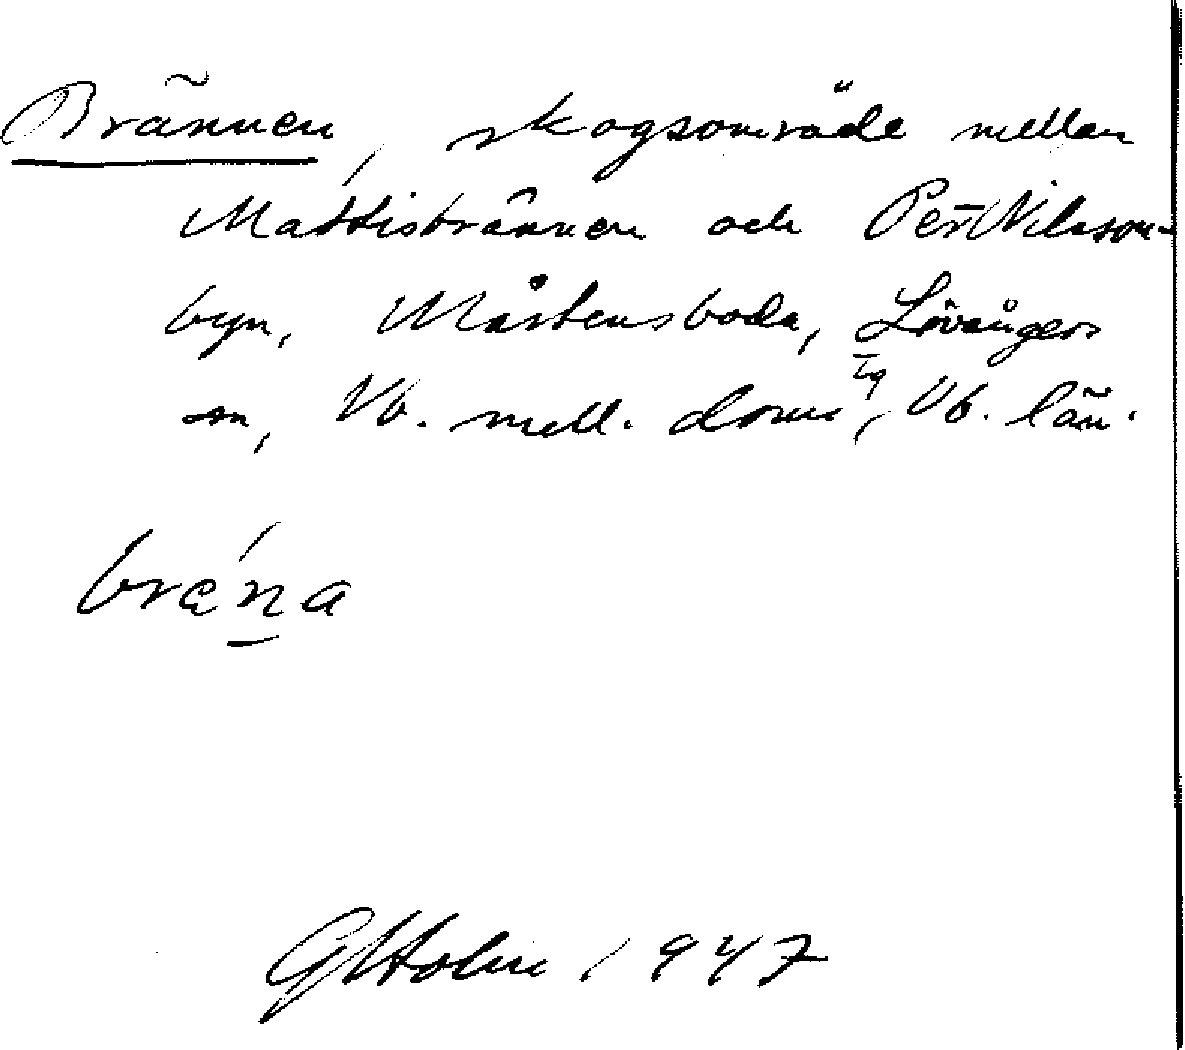 Brännen, skogsområde mellan
Mattisbrännen och Per-Nilsson-
byn, Mårtensboda, Lövångers
sn, Vb. mell. doms
tg, Vb. län.
bræ´na
G Holm 1947